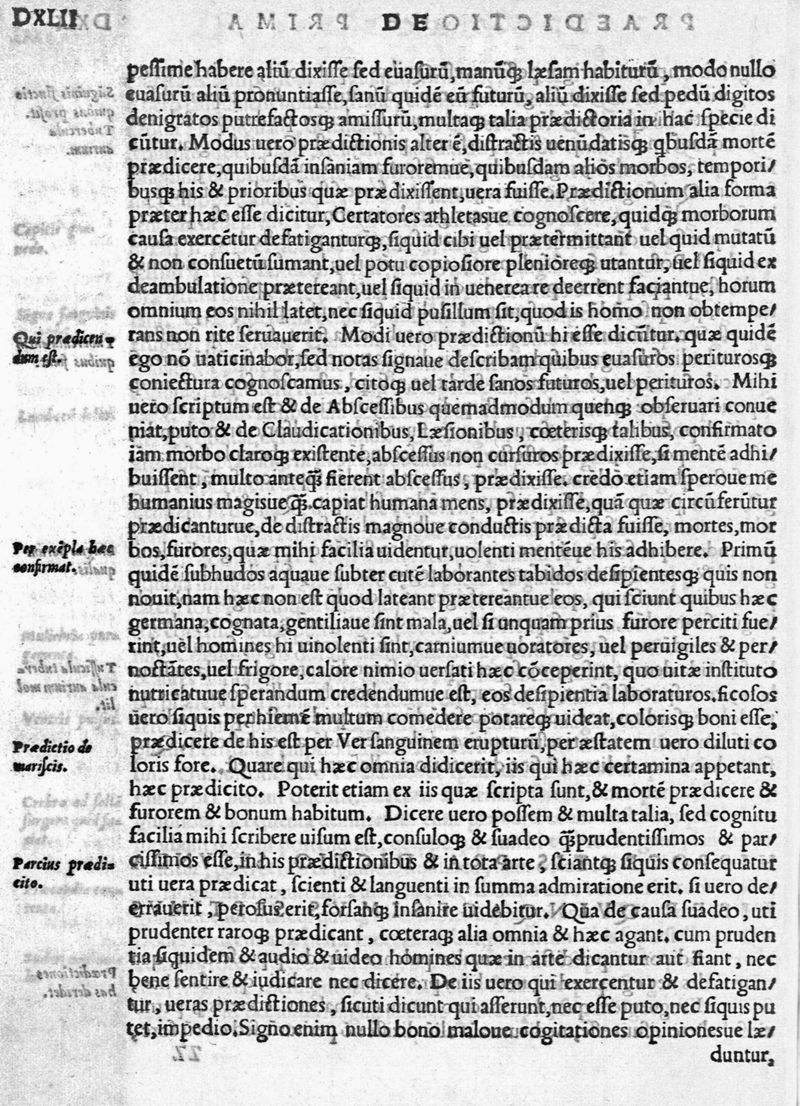 DXLII
DE
pessime habere aliũ dixisse sed euasurũ, manũq; læsam habiturũ, modo nullo
euasurũ aliũ pronuntiasse, sanũ quidẽ eũ futurũ, aliũ dixisse sed pedũ digitos
denigratos putrefactosq; amissurũ, multaq; talia prædictoria in hac specie di
cũtur. Modus uero prædictionis alter ẽ, distractis uenũdatisq; qbusdã mortẽ
prædicere, quibusdã insaniam furoremue, quibusdam alios morbos, tempori/
busq; his & prioribus quæ prædixissent, uera fuisse. Prædictionum alia forma
præter hæc esse dicitur, Certatores athletasue cognoscere, quidq; morborum
causa exercẽtur defatiganturq;, siquid cibi uel prætermittant uel quid mutatũ
& non consuetũ sumant, uel potu copiosiore plenioreq; utantur, uel siquid ex
deambulatione prætereant, uel siquid in uenerea re deerrent faciantue, horum
omnium eos nihil latet, nec siquid pusillum sit, quod is homo non obtempe/
rans non rite seruauerit. Modi uero prædictionũ hi esse dicũtur. quæ quidẽ
Qui prædicen
dum est.
ego nõ uaticinabor, sed notas signaue describam quibus euasuros periturosq;
coniectura cognoscamus, citoq; uel tarde sanos futuros, uel perituros. Mihi
uero scriptum est & de Abscessibus quemadmodum quenq; obseruari conue
niat, puto & de Claudicationibus, Læsionibus, cœterisq; talibus, confirmato
iàm morbo claroq; existente, abscessus non cursuros prædixisse, si mentẽ adhi/
buissent, multo anteq̃ fierent abscessus, prædixisse. credo etiam speroue me
humanius magisueq̃. capiat humana mens, prædixisse, quã quæ circũferũtur
prædicanturue, de distractis magnoue conductis prædicta fuisse, mortes, mor
Per exẽpla hæc
confirmat.
bos, furores, quæ mihi facilia uidentur, uolenti mentẽue his adhibere. Primũ
quidẽ subhudos aquaue subter cutẽ laborantes tabidos desipientesq; quis non
nouit, nam hæc non est quod lateant prætereantue eos, qui sciunt quibus hæc
germana, cognata, gentiliaue sint mala, uel si unquam prius furore perciti fue/
rint, uel homines hi uinolenti sint, carniumue uoratores, uel peruigiles & per/
noctãtes, uel frigore, calore nimio uersati hæc cõceperint, quo uitæ instituto
nutricatuue sperandum credendumue est, eos desipientia laboraturos. ficosos
uero siquis per hiemẽ multum comedere potareq; uideat, colorisq; boni esse,
Prædictio de
mariscis.
prædicere de his est per Ver sanguinem erupturũ, per æstatem uero diluti co
loris fore. Quare qui hæc omnia didicerit, iis qui hæc certamina appetant,
hæc prædicito. Poterit etiam ex iis quæ scripta sunt, & mortẽ prædicere &
furorem & bonum habitum. Dicere uero possem & multa talia, sed cognitu
facilia mihi scribere uisum est, consuloq; & suadeo q̃ prudentissimos & par/
Parcius prædi-
cito.
cissimos esse, in his prædictionibus & in tota arte, sciantq; siquis consequatur
uti uera prædicat, scienti & languenti in summa admiratione erit. si uero de/
errauerit, perosus erit, forsanq; insanire uidebitur. Qua de causa suadeo, uti
prudenter raroq; prædicant, cœteraq; alia omnia & hæc agant. cum pruden
tia siquidem & audio & uideo homines quæ in arte dicantur aut fiant, nec
bene sentire & iudicare nec dicere. De iis uero qui exercentur & defatigan/
tur, ueras prædictiones, sicuti dicunt qui asserunt, nec esse puto, nec siquis pu
tet, impedio. Signo enim nullo bono maloue cogitationes opinionesue læ/
duntur,